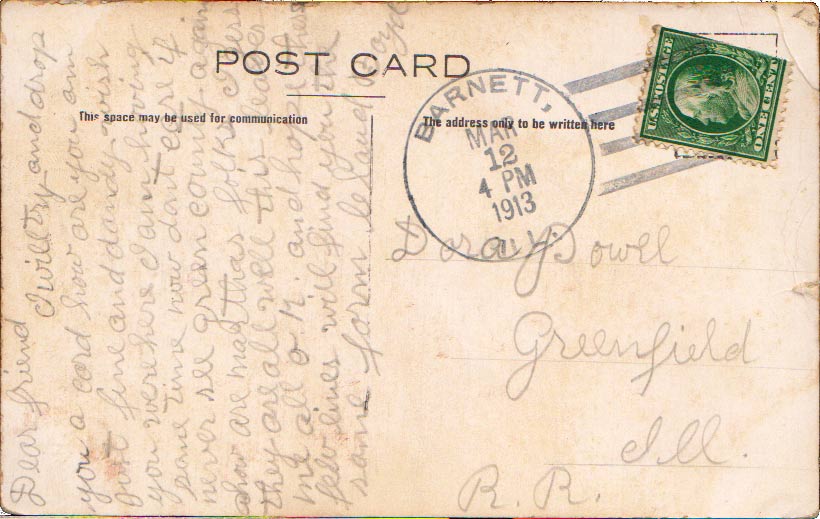 POST CARD
This space may be used for communication
The address only to be written here
U.S. POSTAGE
ONE CENT
BARNETT,
MAR
12
4 PM
1913
ILL.
Dear friend I will try and drop
you a card how are you am
just fine and dandy wish
you were here I am having
some time now dont care if
never see green county again
how are folks
they are all well this leaves
me all O.K. and hope these
few lines will find you the
same form
Dora Dowell
Greenfield
Ill.
R. R.